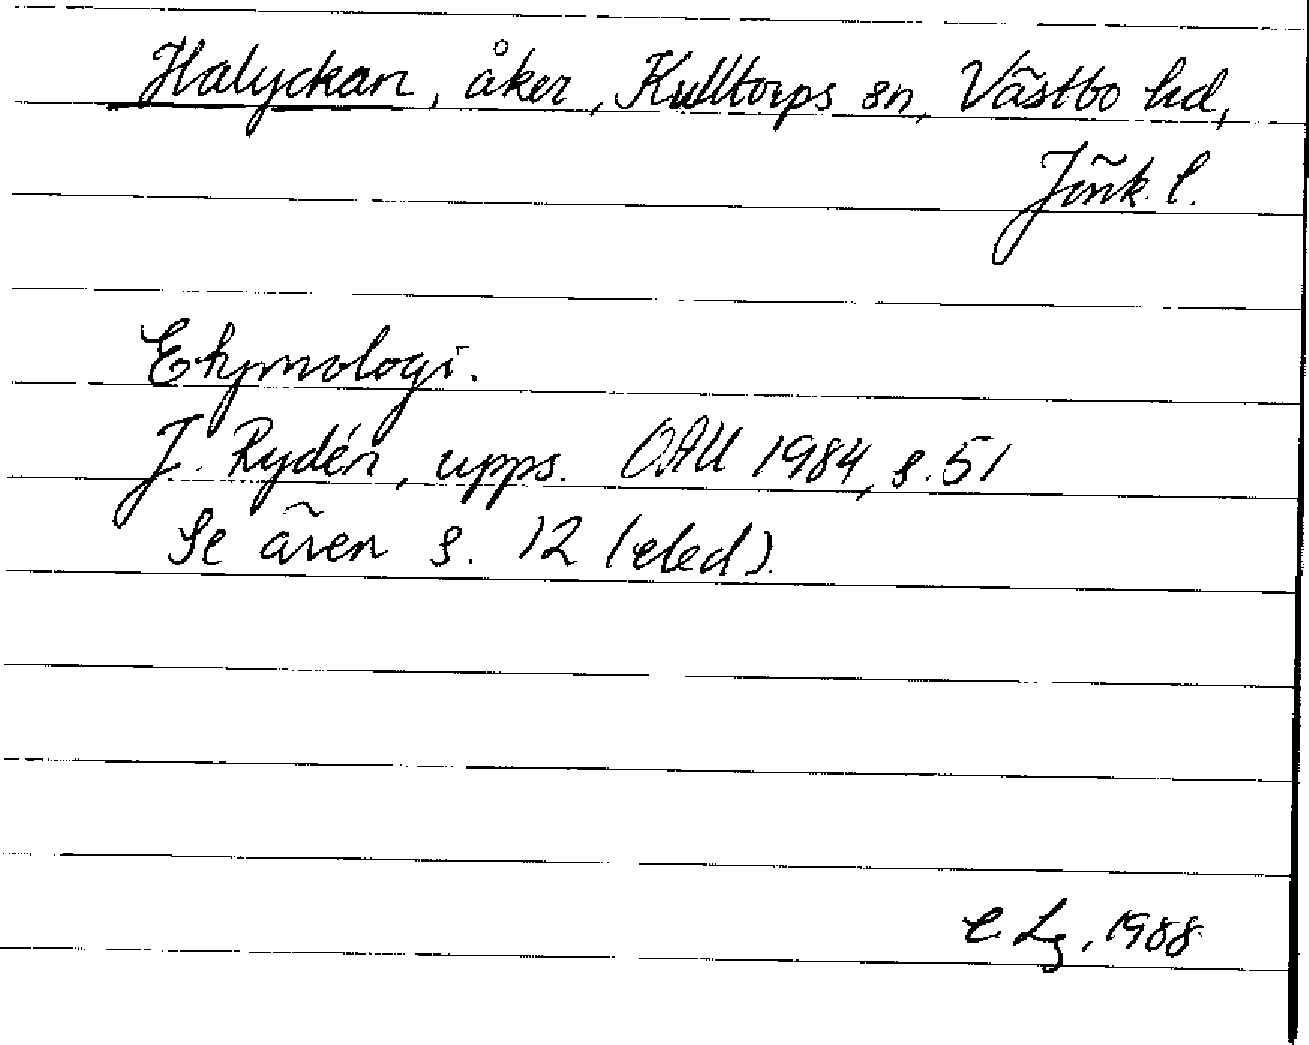 Halyckan, åker, Kulltorps sn, Västbo hd,
Jönk. l.
Etymologi.
J. Rydén, upps. OAU 1984, s. 51
Se även s. 12 (eled).
C Lg, 1988